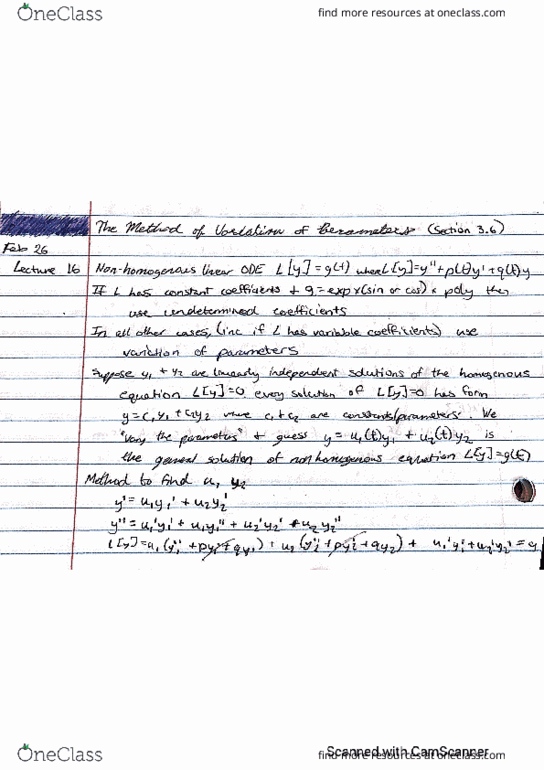 OneClass
find more resources at oneclass.com
The Method of Variation of Parameters (Section 3.6)
Feb 26
Lecture 16 Non-homogenous linear ODE L[y] = g(t) where L[y]=y"+p(t)y'+q(t)y
If L has constant coefficients + g = exp x (sin or cos) x poly then
use undetermined coefficients
In all other cases, (inc if L has variable coefficients) use
variation of parameters
Suppose y₁ + y₂ are linearly independent solutions of the homogenous
equation L[y]=0 every solution of L[y]=0 has form
y = c₁y₁ + c₂y₂ where c₁ + c₂ are constants/parameters. We
"Vary the parameters" + guess y = u₁(t)y₁ + u₂(t)y₂ is
the general solution of nonhomogenous equation L[y]=g(t)
Method to find u₁ y₂
y' = u₁y₁' + u₂y₂'
y" = u₁'y₁' + u₁y₁" + u₂'y₂' + u₂y₂"
L[y] = u₁(y₁" + py₁' + qy₁) + u₂(y₂" + py₂' + qy₂) + u₁'y₁' + u₂'y₂' = g
OneClass
find more resources at oneclass.com
Scanned with CamScanner